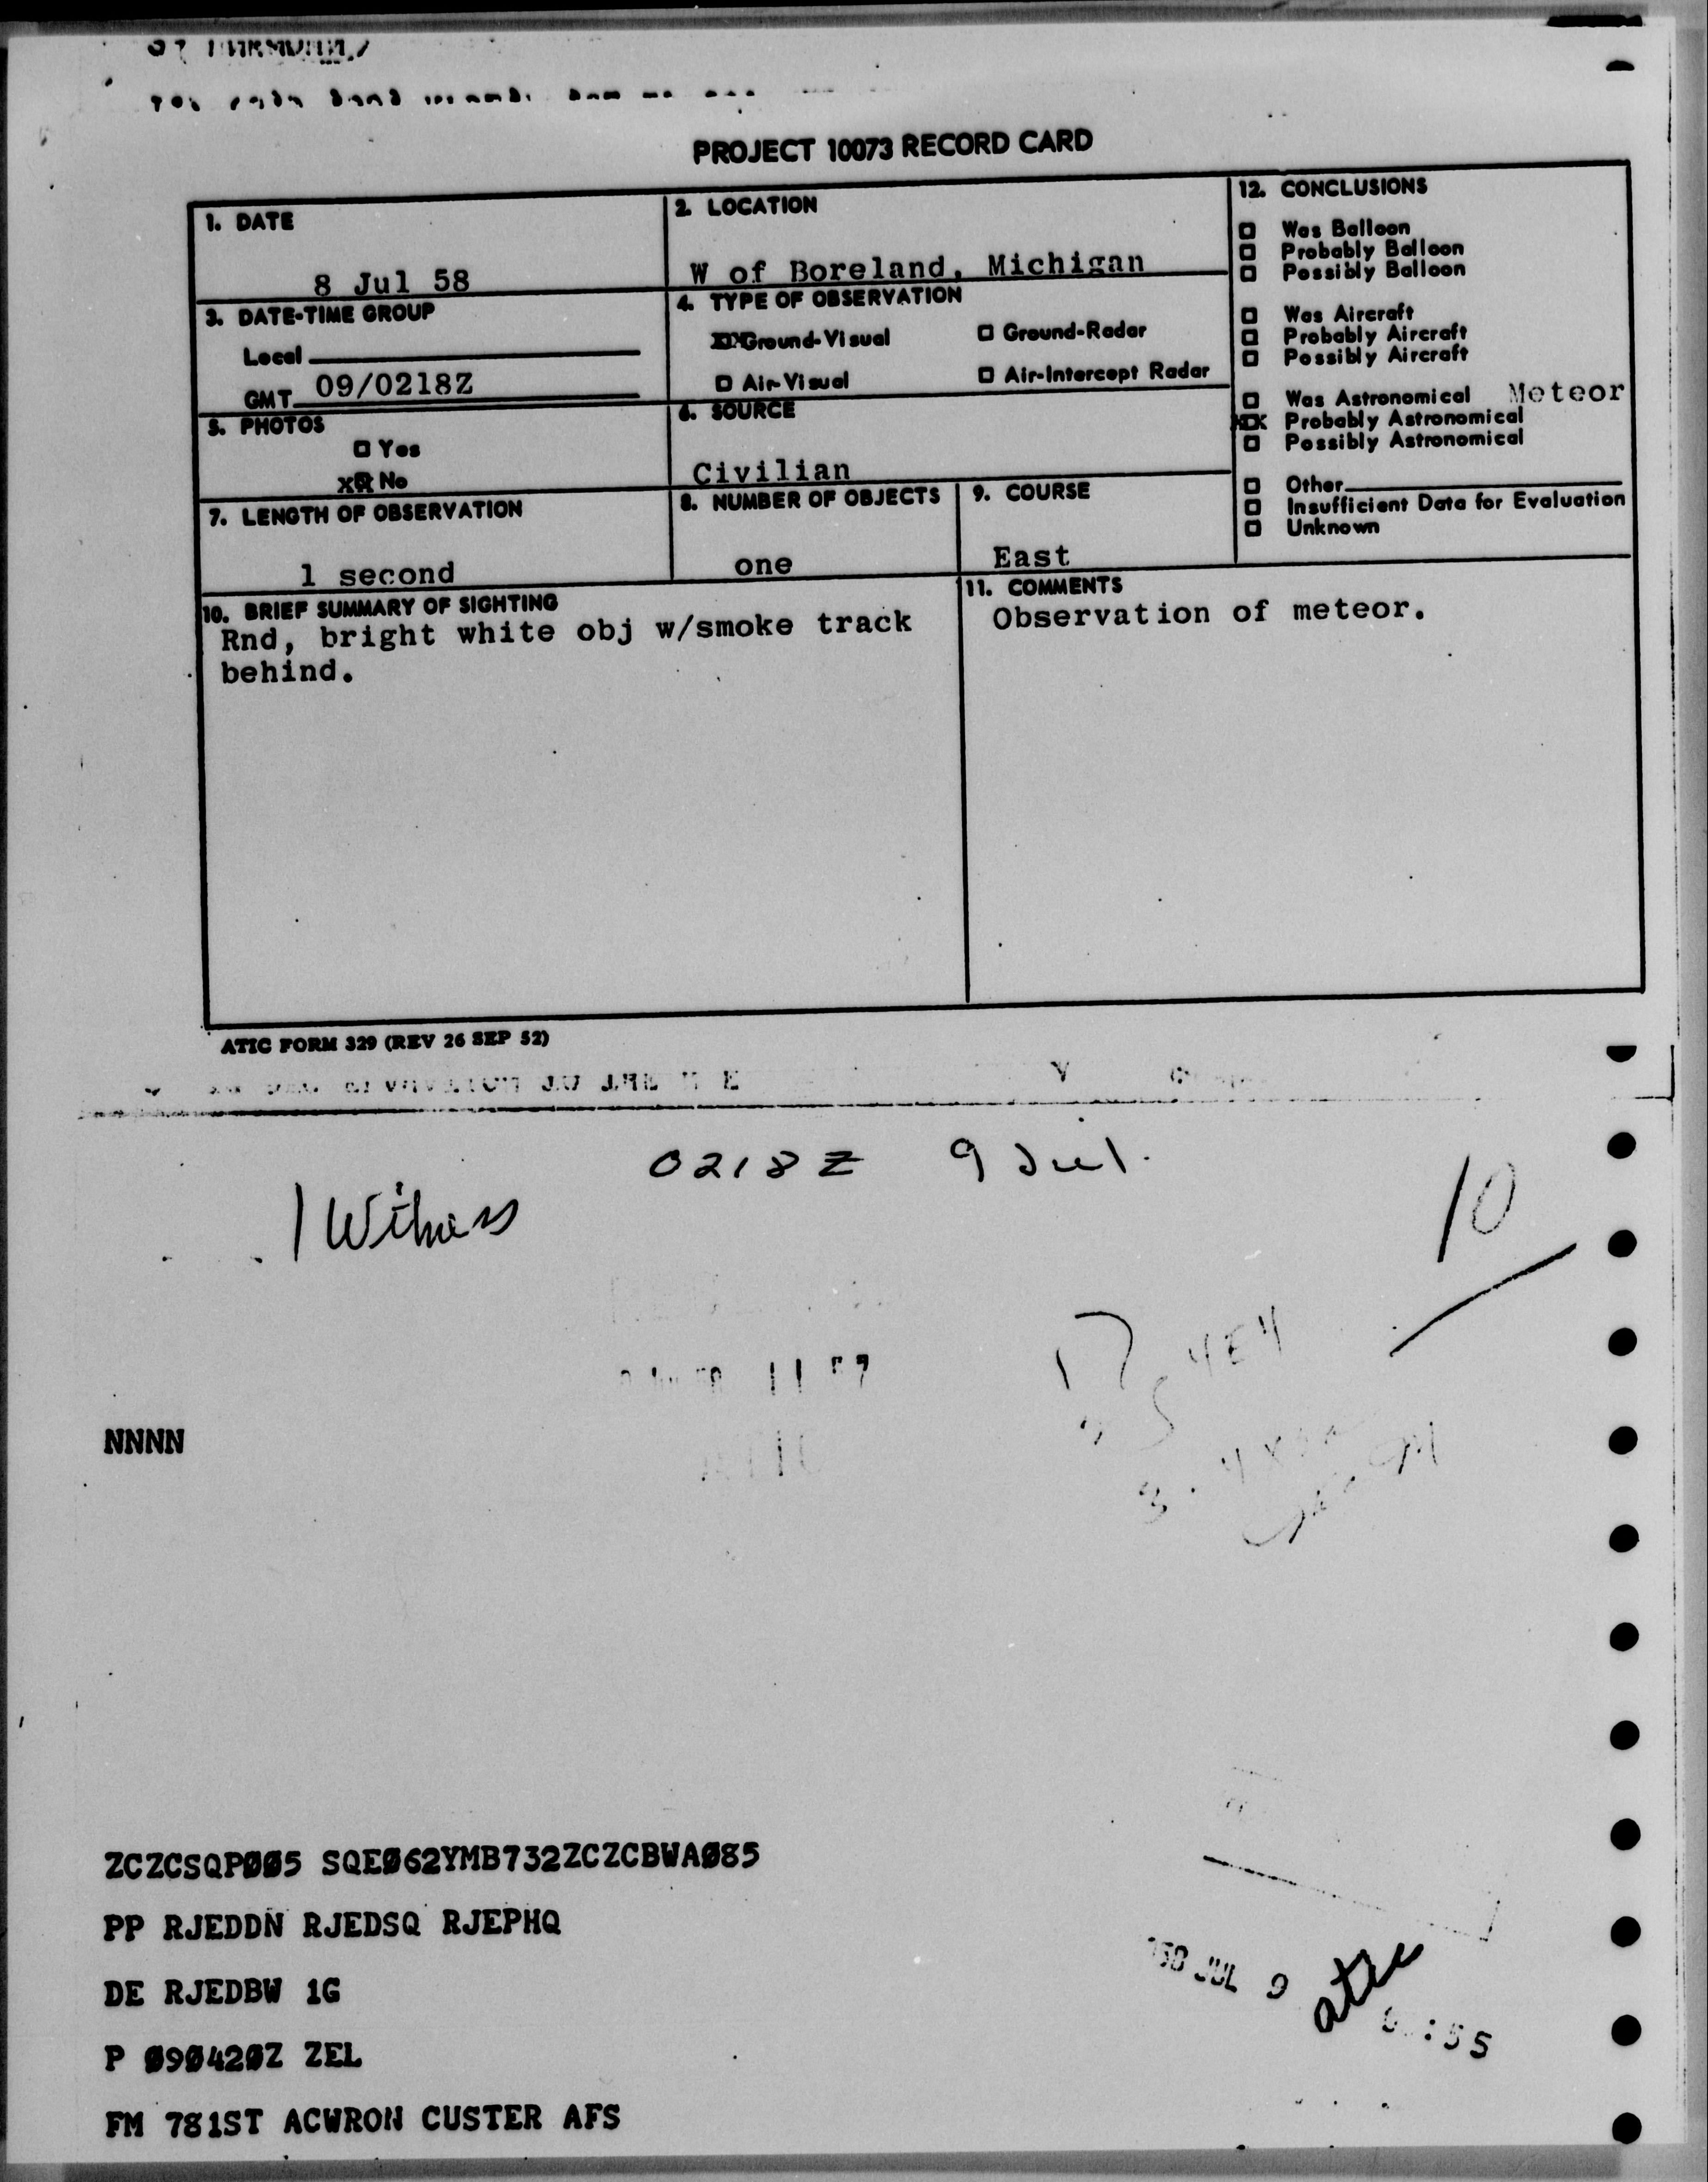 PROJECT 10073 RECORD CARD
1. DATE
8 Jul 58
2. LOCATION
W of Boreland, Michigan
3. DATE-TIME GROUP
Local
GMT 09/0218Z
4. TYPE OF OBSERVATION
XX Ground-Visual
□ Ground-Radar
□ Air-Visual
□ Air-Intercept Radar
5. PHOTOS
□ Yes
XX No
6. SOURCE
Civilian
7. LENGTH OF OBSERVATION
1 second
8. NUMBER OF OBJECTS
one
9. COURSE
East
12. CONCLUSIONS
□ Was Balloon
□ Probably Balloon
□ Possibly Balloon
□ Was Aircraft
□ Probably Aircraft
□ Possibly Aircraft
□ Was Astronomical Meteor
XX Probably Astronomical
□ Possibly Astronomical
□ Other
□ Insufficient Data for Evaluation
□ Unknown
10. BRIEF SUMMARY OF SIGHTING
Rnd, bright white obj w/smoke track
behind.
11. COMMENTS
Observation of meteor.
ATIC FORM 329 (REV 26 SEP 52)
0218Z 9 Jul.
1 Witness
10
NNNN
ZCZCSQPØØ5 SQEØ62YMB732ZCZCBWAØ85
PP RJEDDN RJEDSQ RJEPHQ
DE RJEDBW 1G
P Ø9Ø42ØZ ZEL
FM 781ST ACWRON CUSTER AFS
'58 JUL 9
atic
:55